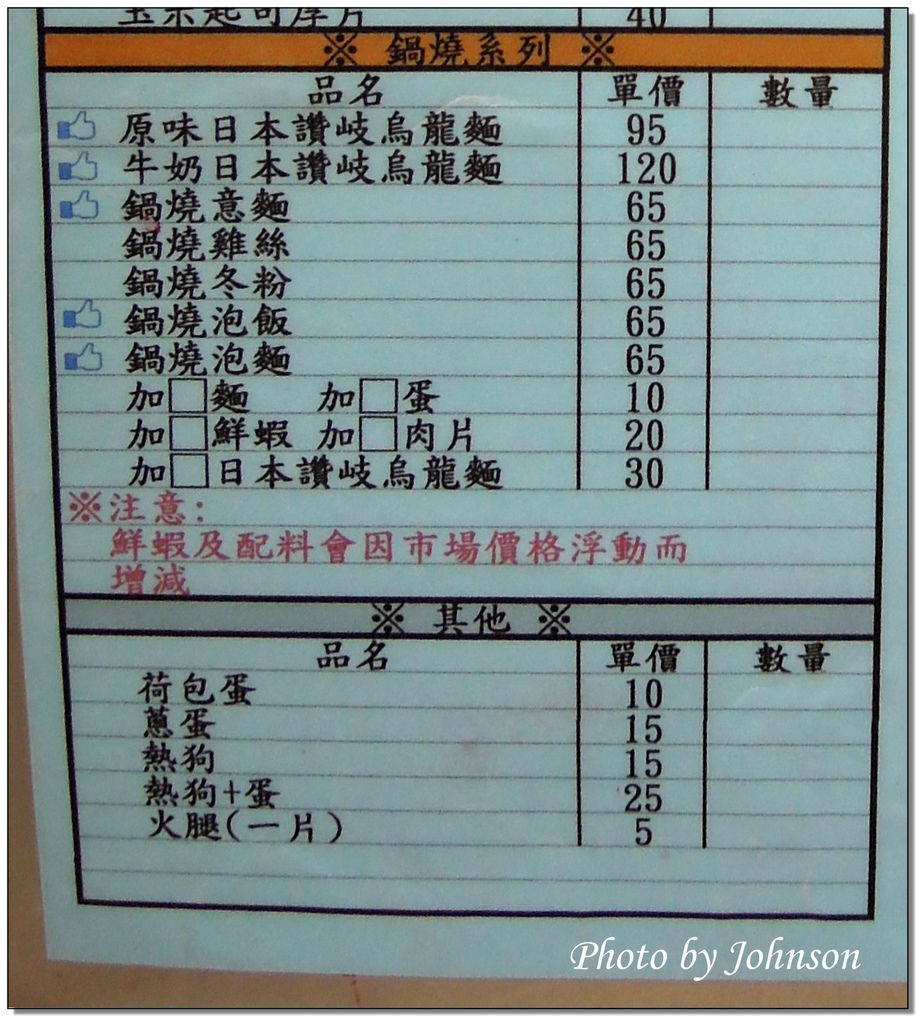 玉米起司厚片 40
※ 鍋燒系列 ※
品名 單價 數量
原味日本讚岐烏龍麵 95
牛奶日本讚岐烏龍麵 120
鍋燒意麵 65
鍋燒雞絲 65
鍋燒冬粉 65
鍋燒泡飯 65
鍋燒泡麵 65
加□麵 加□蛋 10
加□鮮蝦 加□肉片 20
加□日本讚岐烏龍麵 30
※注意:
鮮蝦及配料會因市場價格浮動而
增減
※ 其他 ※
品名 單價 數量
荷包蛋 10
蔥蛋 15
熱狗 15
熱狗+蛋 25
火腿(一片) 5
Photo by Johnson